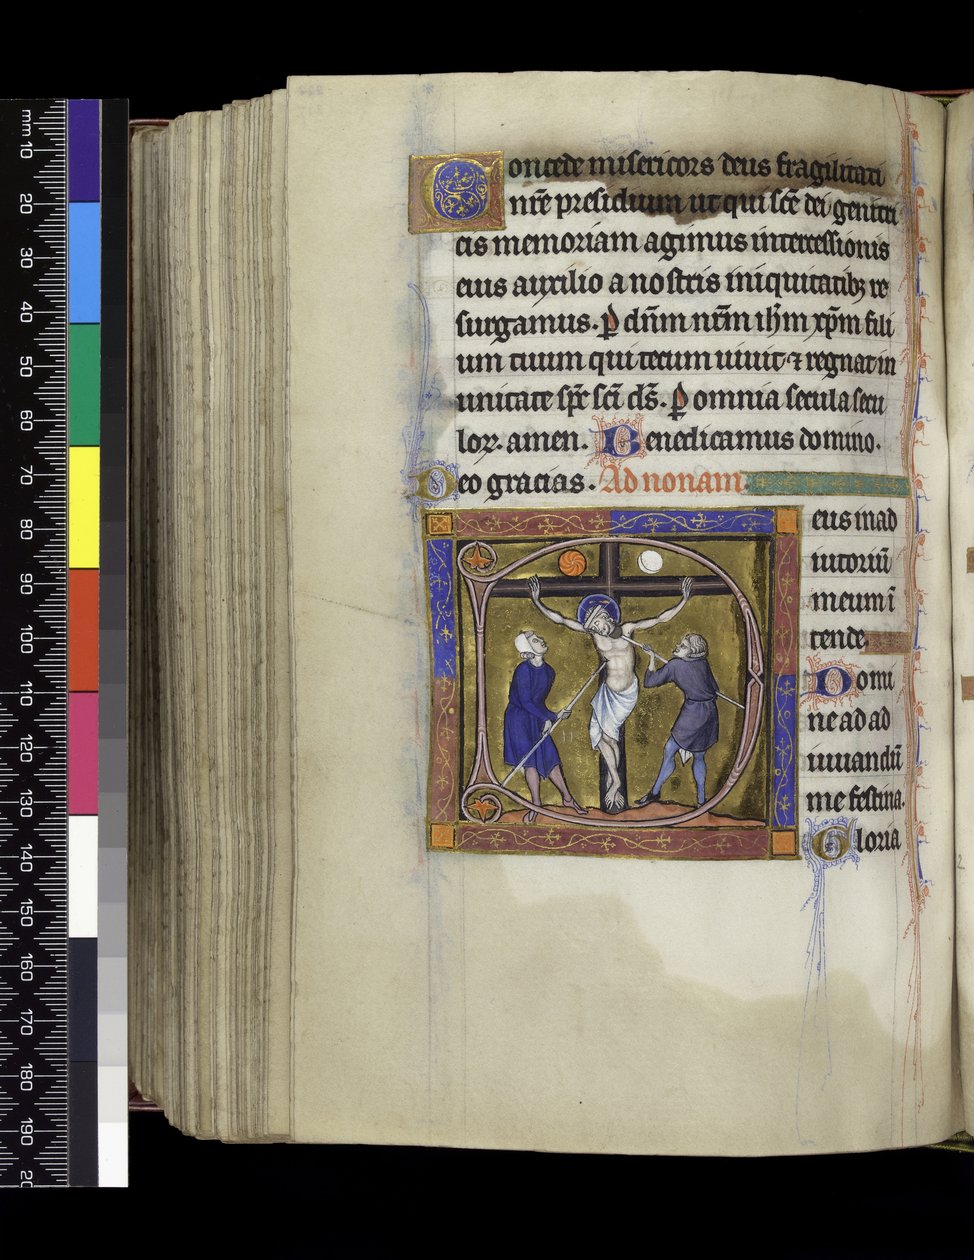 mm 10 20 30 40 50 60 70 80 90 100 110 120 130 140 150 160 170 180 190
Concede misericors deus fragilitati
nr̄e presidium ut qui sc̄e dei genitri
cis memoriam agimus intercessionis
eius auxilio a nostris iniquitatibꝫ re
surgamus. ꝑ dūm nr̄m ih̄m xp̄m fili
um tuum qui tecum uiuit ⁊ regnat in
unitate sp̄c sc̄i ds̄. ꝑ omnia secula secu
loꝝ. amen. Benedicamus domino.
Deo gracias. Ad nonam
Deus in ad
iutoriū
meum ī
tende
Domi
ne ad ad
iuuandū
me festina.
Gloria